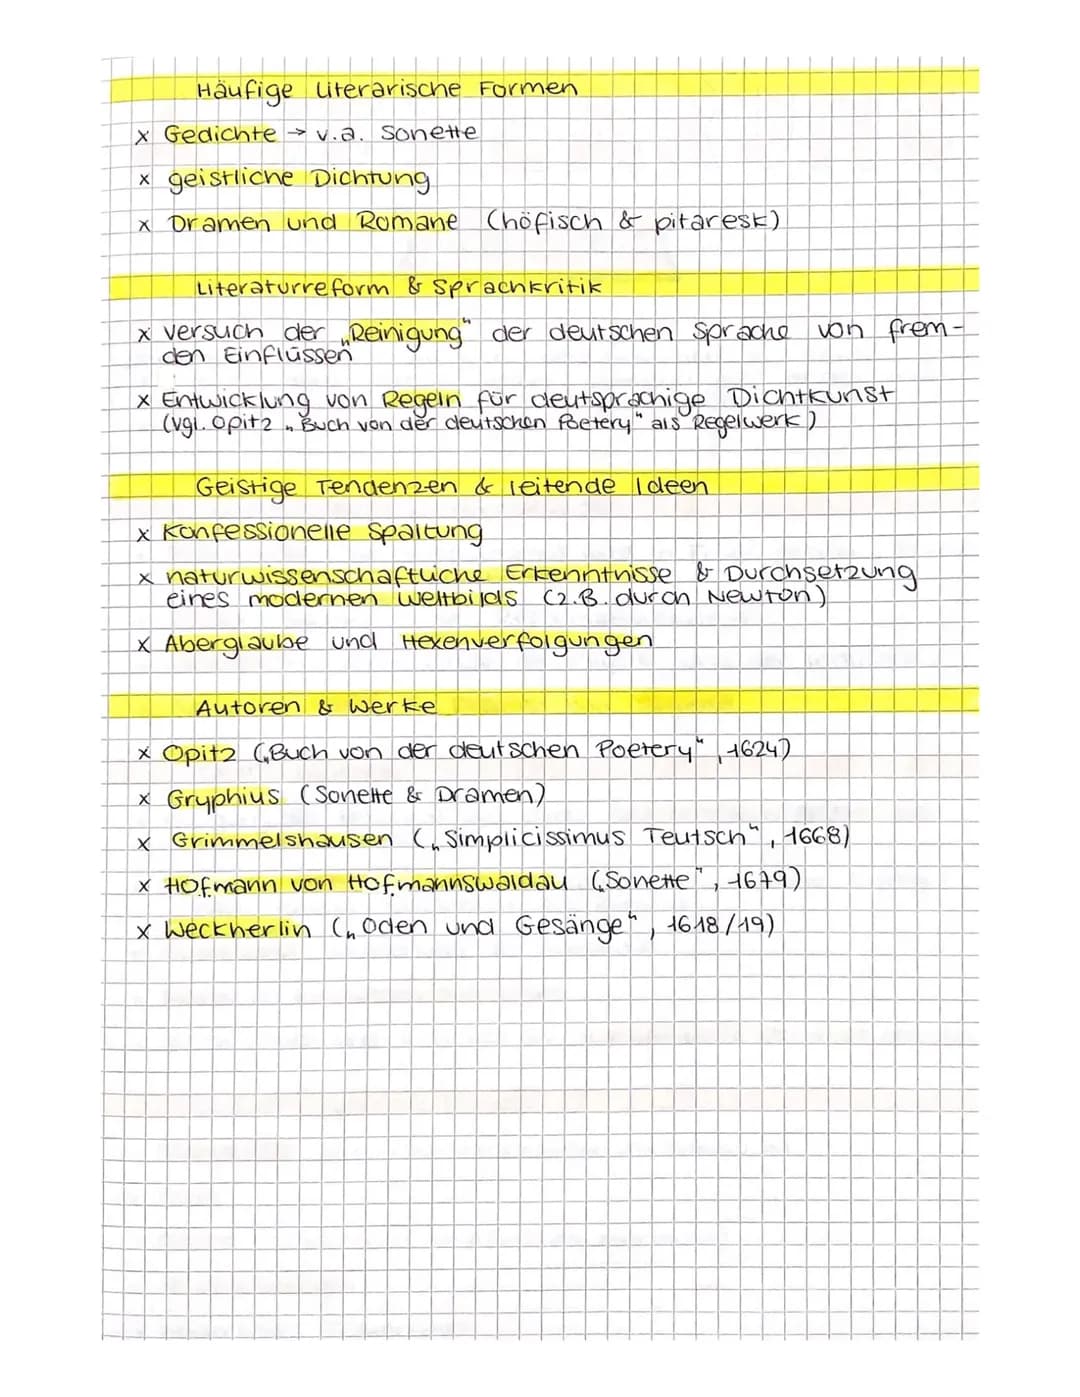 Häufige literarische Formen
x Gedichte → v.a. Sonette
x geistliche Dichtung
x Dramen und Romane (höfisch & pikaresk)
Literaturreform & Sprachkritik
x Versuch der „Reinigung" der deutschen Sprache von frem-
den Einflüssen
x Entwicklung von Regeln für deutsprachige Dichtkunst
(vgl. Opitz „Buch von der deutschen Poetery" als Regelwerk)
Geistige Tendenzen & leitende Ideen
x Konfessionelle Spaltung
x naturwissenschaftliche Erkenntnisse & Durchsetzung
eines modernen Weltbilds (z.B. durch Newton)
x Aberglaube und Hexenverfolgungen
Autoren & Werke
x Opitz („Buch von der deutschen Poetery", 1624)
x Gryphius (Sonette & Dramen)
x Grimmelshausen („Simplicissimus Teutsch", 1668)
x Hofmann von Hofmannswaldau („Sonette", 1679)
x Weckherlin („Oden und Gesänge", 1618/19)